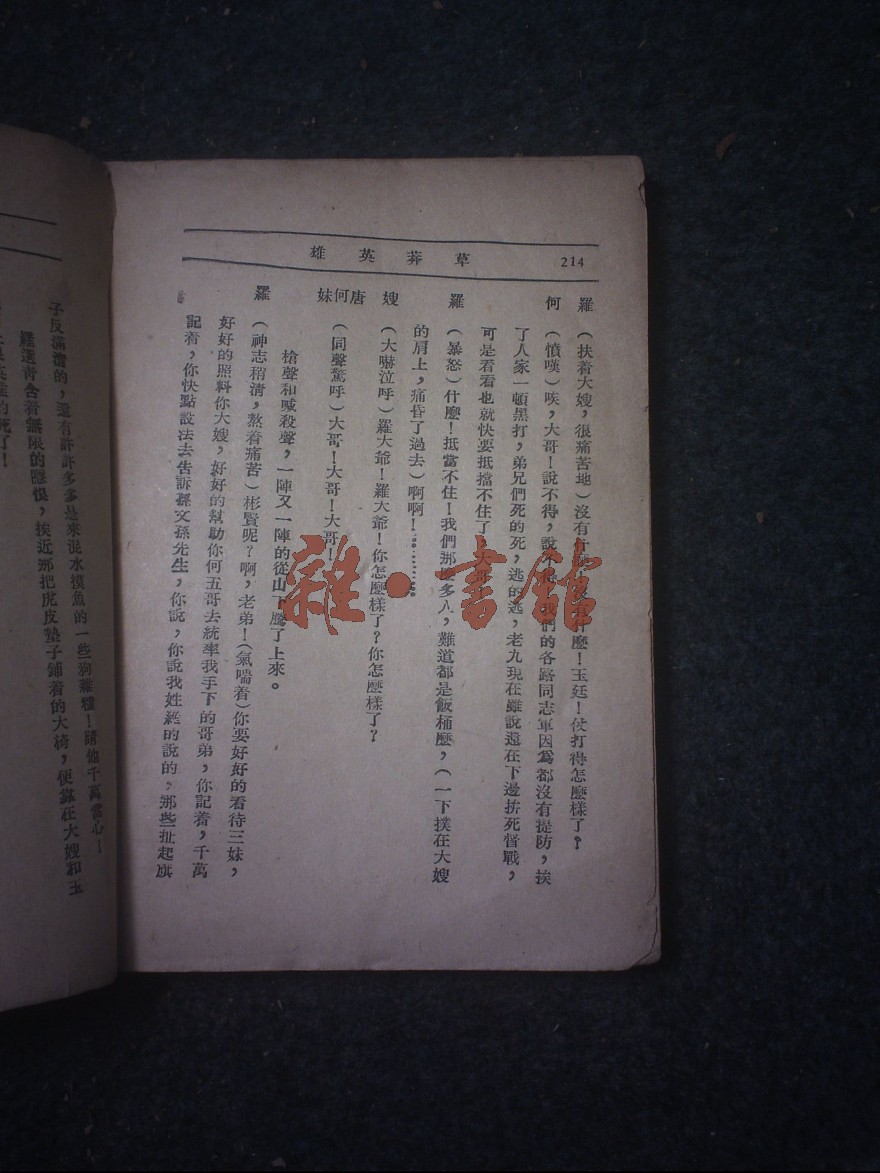 214
草莽英雄
羅 （扶着大嫂，很痛苦地）沒有什麼！沒有什麼！玉廷！仗打得怎麼樣了？
何 （憤嘆）唉，大哥！說不得，說不得，我們的各路同志軍因爲都沒有提防，挨
了人家一頓黑打，弟兄們死的死，逃的逃，老九現在雖說還在下邊拚死督戰，
可是看看也就快要抵擋不住了，大哥！
羅 （暴怒）什麼！抵當不住！我們那麼多人，難道都是飯桶麼，（一下撲在大嫂
的肩上，痛昏了過去）啊啊！…………
嫂 （大嚇泣呼）羅大爺！羅大爺！你怎麼樣了？你怎麼樣了？
唐何妹 （同聲驚呼）大哥！大哥！大哥！
槍聲和喊殺聲，一陣又一陣的從山下騰了上來。
羅 （神志稍清，熬着痛苦）彬賢呢？啊，老弟！（氣喘着）你要好好的看待三妹，
好好的照料你大嫂，好好的幫助你何五哥去統率我手下的哥弟，你記着，千萬
記着，你快點設法去告訴孫文孫先生，你說，你說我姓羅的說的，那些扯起旗
子反滿清的，還有許許多多是來混水摸魚的一些狗雜種！請他千萬當心！
羅選青含着無限的隱恨，挨近那把虎皮墊子鋪着的大椅，便靠在大嫂和玉
的死了！
雜·書館